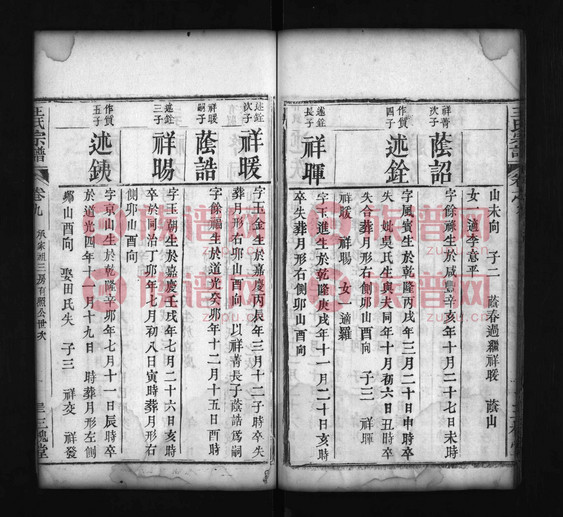 山未向 子二 蔭春過繼祥暖 蔭山
女一適李意平
祥菁次子
蔭詔
字餘祿生於咸豐辛亥年十月二十七日未時
作質四子
述銓
字風賓生於乾隆丙戌年三月二十日申時卒
失 娶吳氏生與夫同年十月初六日丑時卒
失合葬月形右側卯山酉向 子三 祥暉
祥暖 祥暘 女一適羅
述銓長子
祥暉
字玉進生於乾隆庚戌年十一月二十日亥時
卒失葬月形右側卯山酉向
述銓次子
祥暖
字玉金生於嘉慶丙辰年三月十二子時卒失
葬月形右卯山酉向 以祥菁長子蔭誥為嗣
祥暖嗣子
蔭誥
字餘福生於道光癸卯年十二月十五日酉時
述銓三子
祥暘
字玉朝生於嘉慶壬戌年七月二十六日亥時
卒於同治丁卯年七月初八日寅時葬月形右
側卯山酉向
作質五子
述銕
字京山生於乾隆辛卯年七月十一日辰時卒
於道光四年十一月十九日 時葬月形左側
卯山酉向 娶田氏失 子三 祥交 祥發
王氏宗譜
卷九
三槐堂